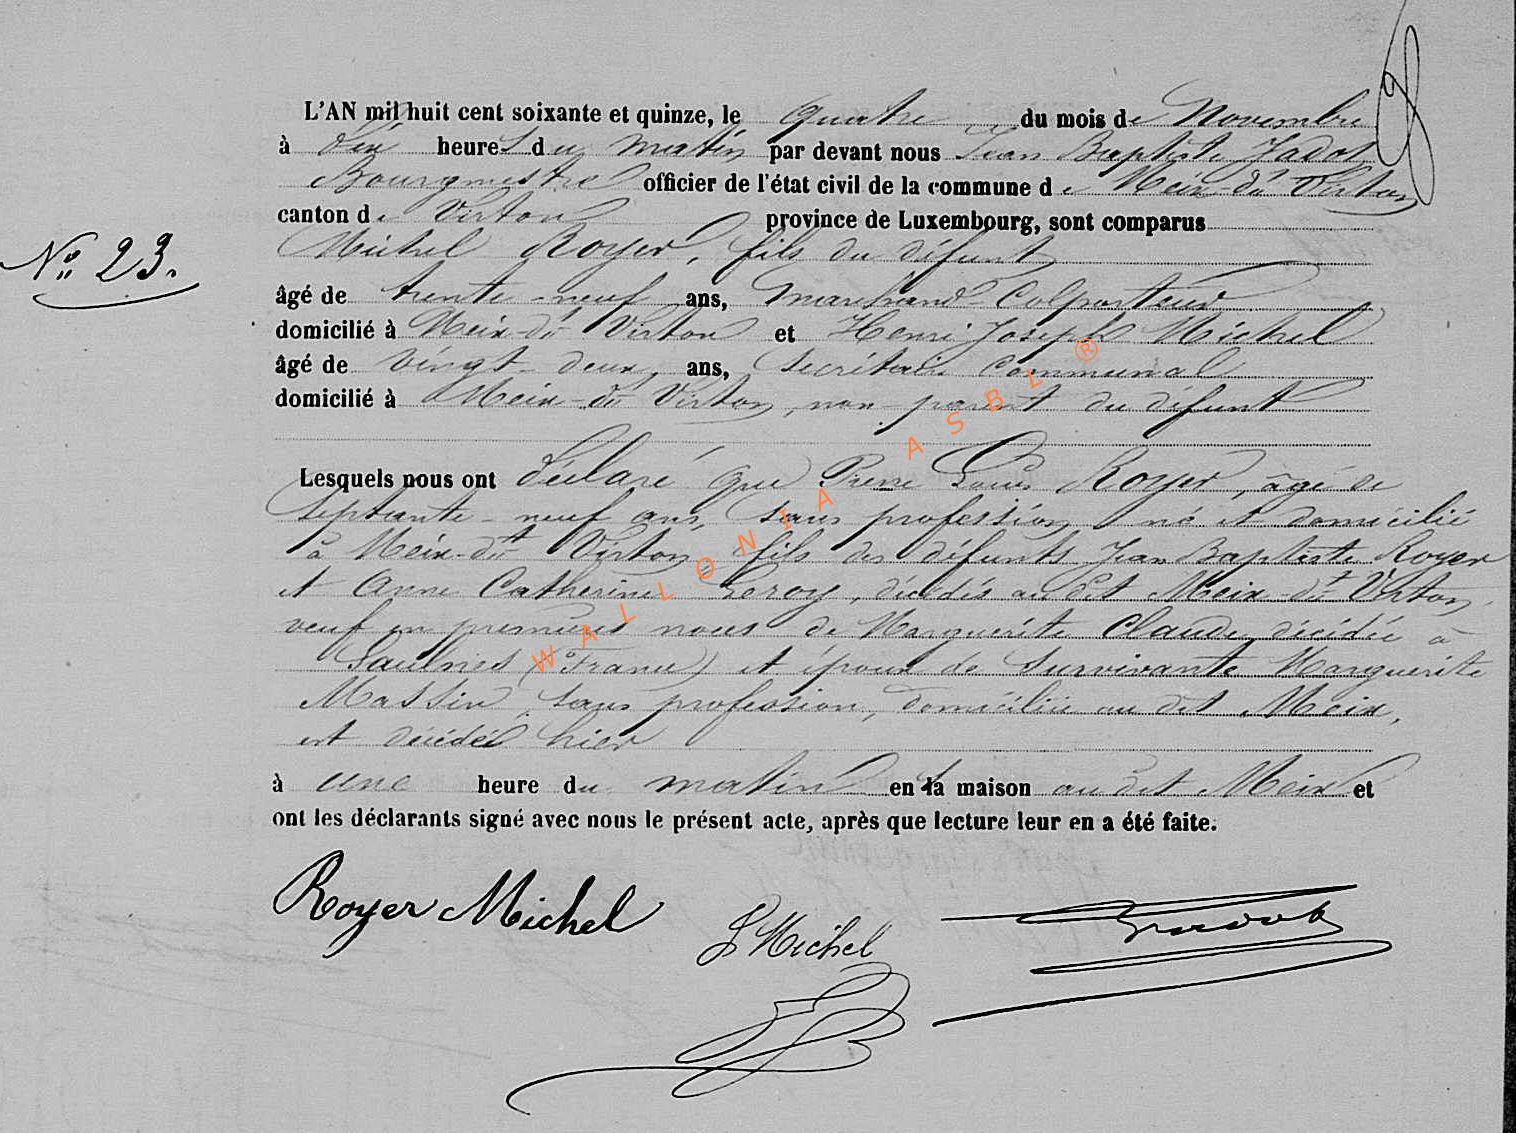 L'AN mil huit cent soixante et quinze, le quatre du mois de Novembre
à dix heures du matin par devant nous Jean Baptiste Jadot
Bourgmestre officier de l'état civil de la commune de Meix-dt Virton
canton de Virton province de Luxembourg, sont comparus
Michel Royer, fils du défunt
N° 23.
âgé de trente-neuf ans, marchand-Colporteur
domicilié à Meix-dt Virton et Henri Joseph Michel
âgé de vingt-deux, ans, Secrétaire Communal
domicilié à Meix-dt Virton, non parent du défunt
Lesquels nous ont déclaré que Pierre Louis Royer, âgé de
septante-neuf ans, sans profession né et domicilié
à Meix-dt Virton, fils des défunts Jean Baptiste Royer
et Anne Catherine Leroy, décédés au dit Meix-dt Virton,
veuf en premières noces de Marguerite Claude, décédée à
Saulnes (France) et époux de survivante Marguerite
Massin, sans profession, domiciliée au dit Meix,
est décédé hier
à une heure du matin en sa maison au dit Meix et
ont les déclarants signé avec nous le présent acte, après que lecture leur en a été faite.
Royer Michel
Michel
Jadot
WALLONIA ASBL ®